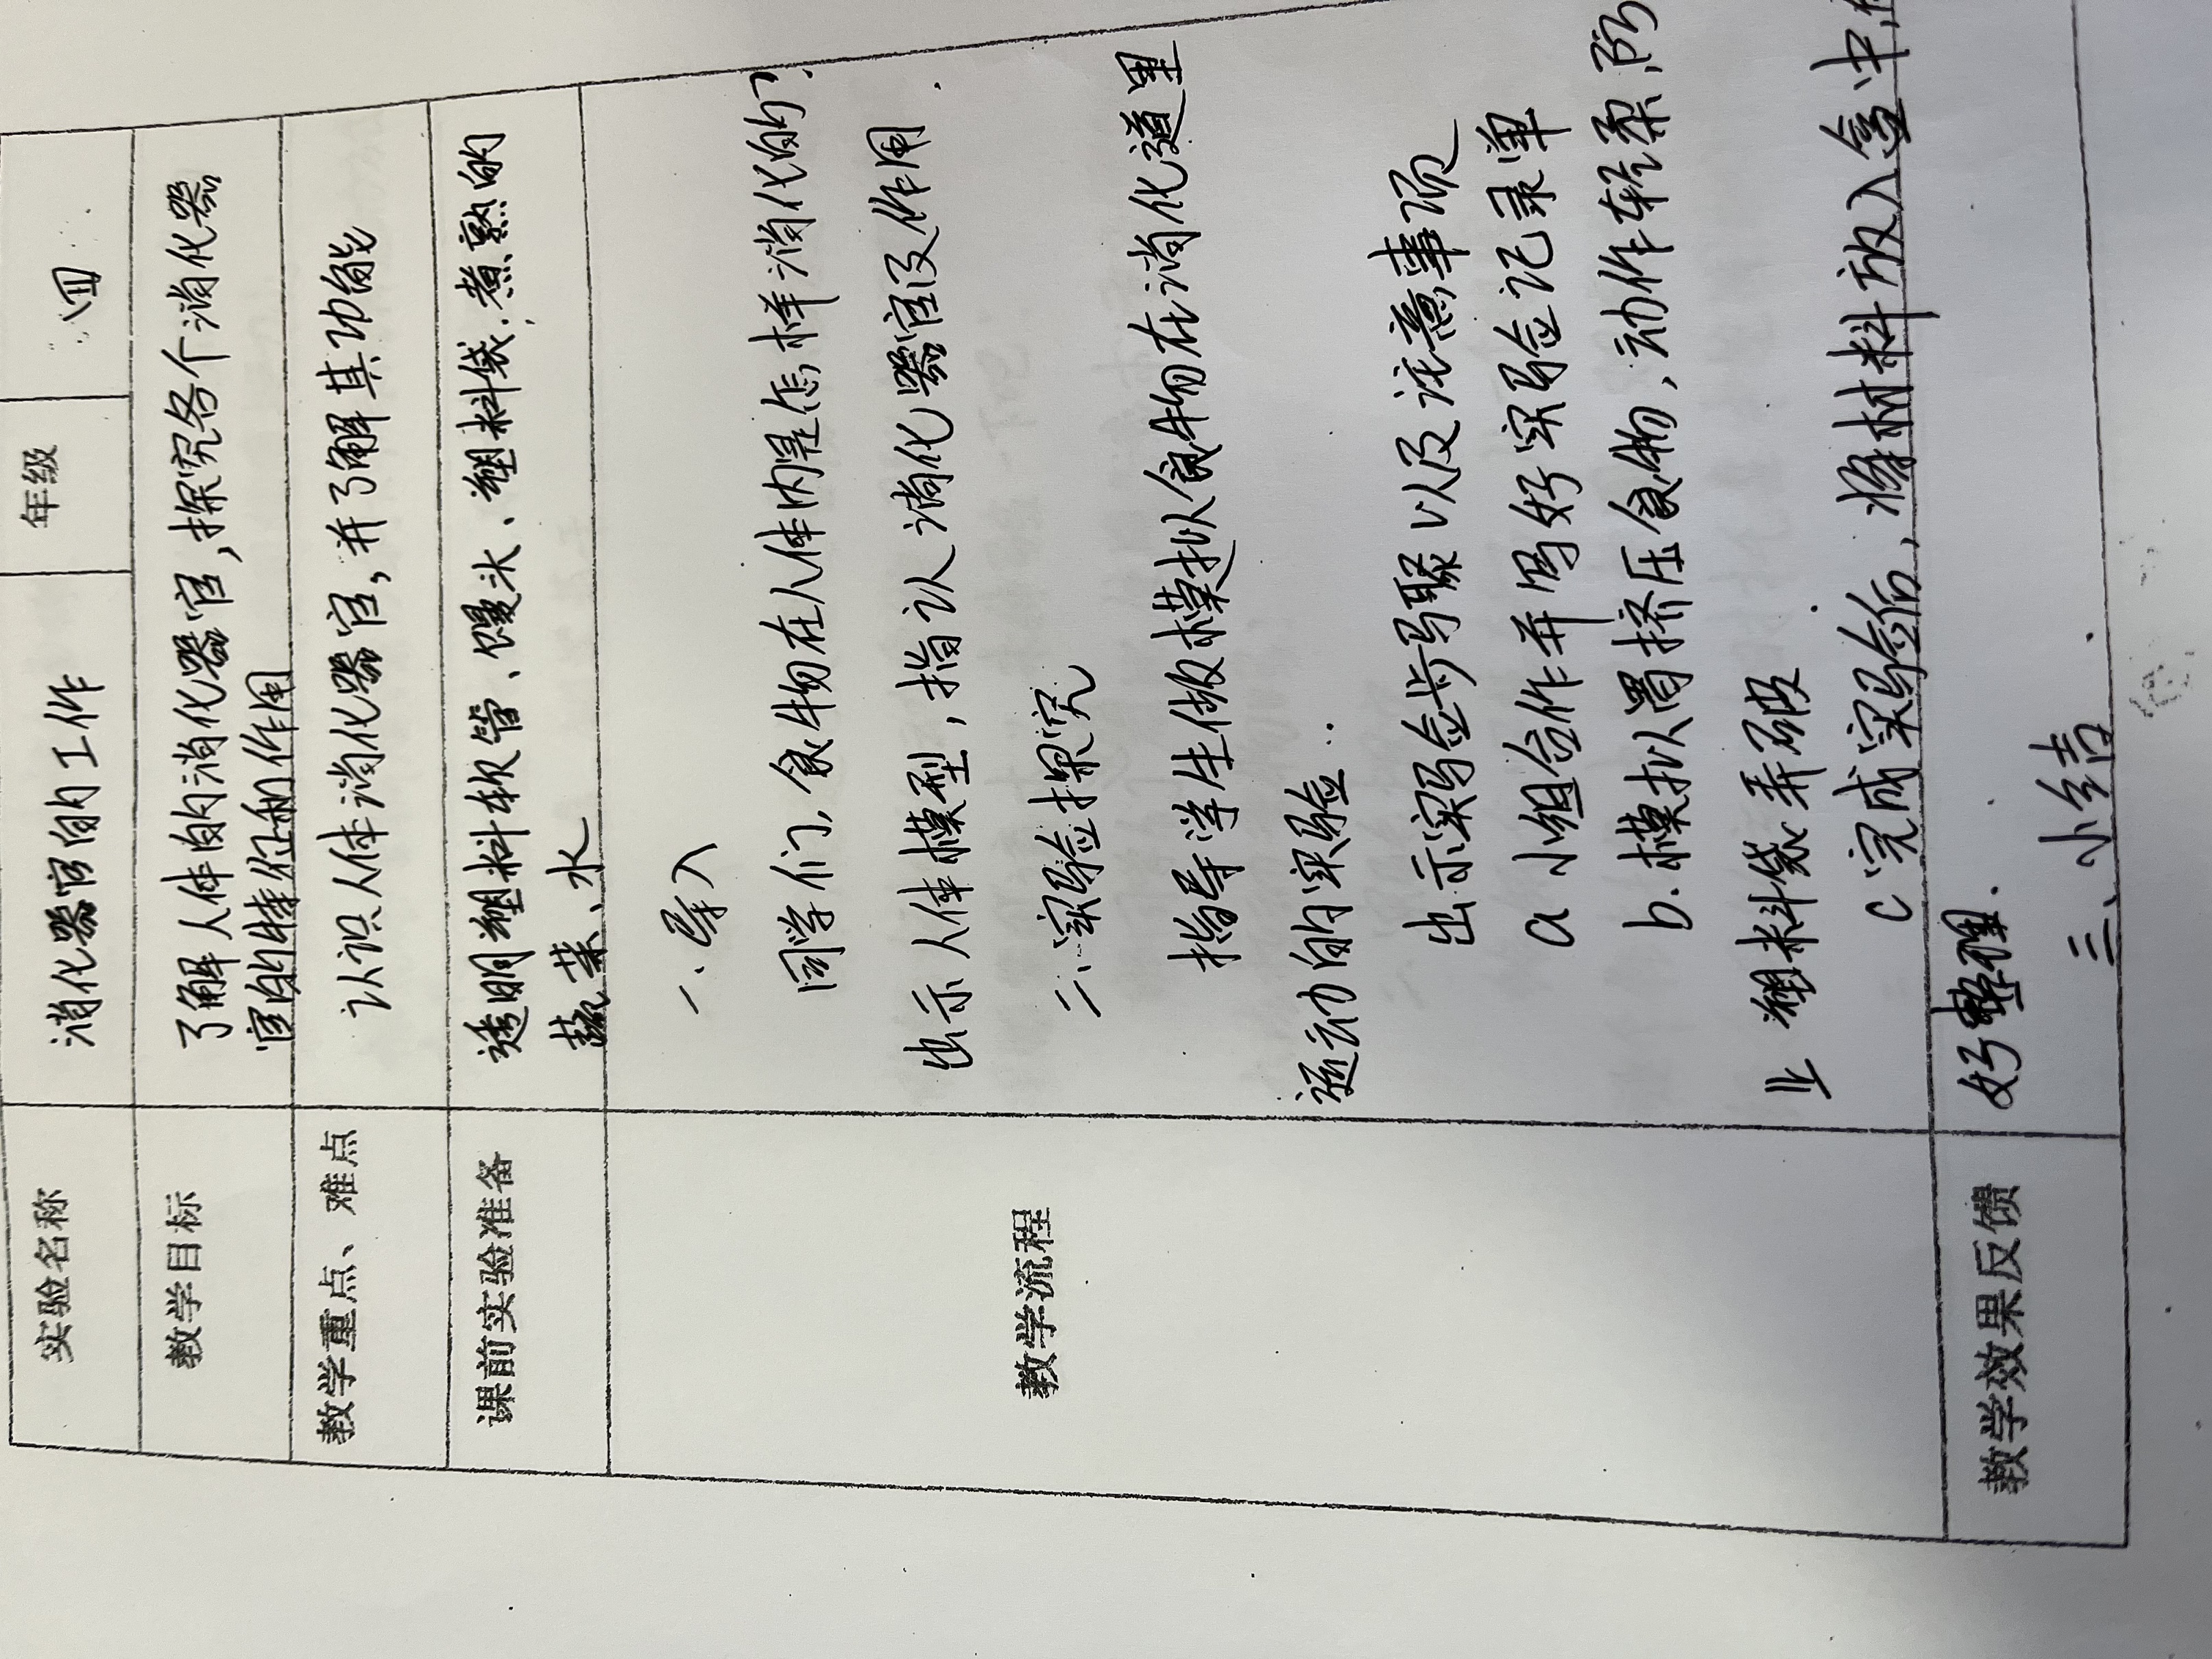 实验名称 消化器官的工作 年级 四
教学目标 了解人体的消化器官,探究各个消化器
官的特征和作用
教学重点、难点 认识人体消化器官,并了解其功能
课前实验准备 透明塑料软管、馒头、塑料袋、煮熟的
蔬菜、水
教学流程
一.导入
同学们,食物在人体内是怎样消化的?
出示人体模型,指认消化器官及作用.
二、实验探究
指导学生做模拟食物在消化道里
运动的实验.
出示实验步骤以及注意事项
a 小组合作并写好实验记录单
b.模拟胃挤压食物,动作轻柔,防
止 塑料袋弄破.
c 完成实验后,将材料放入盒中,
好整理.
三、小结
教学效果反馈